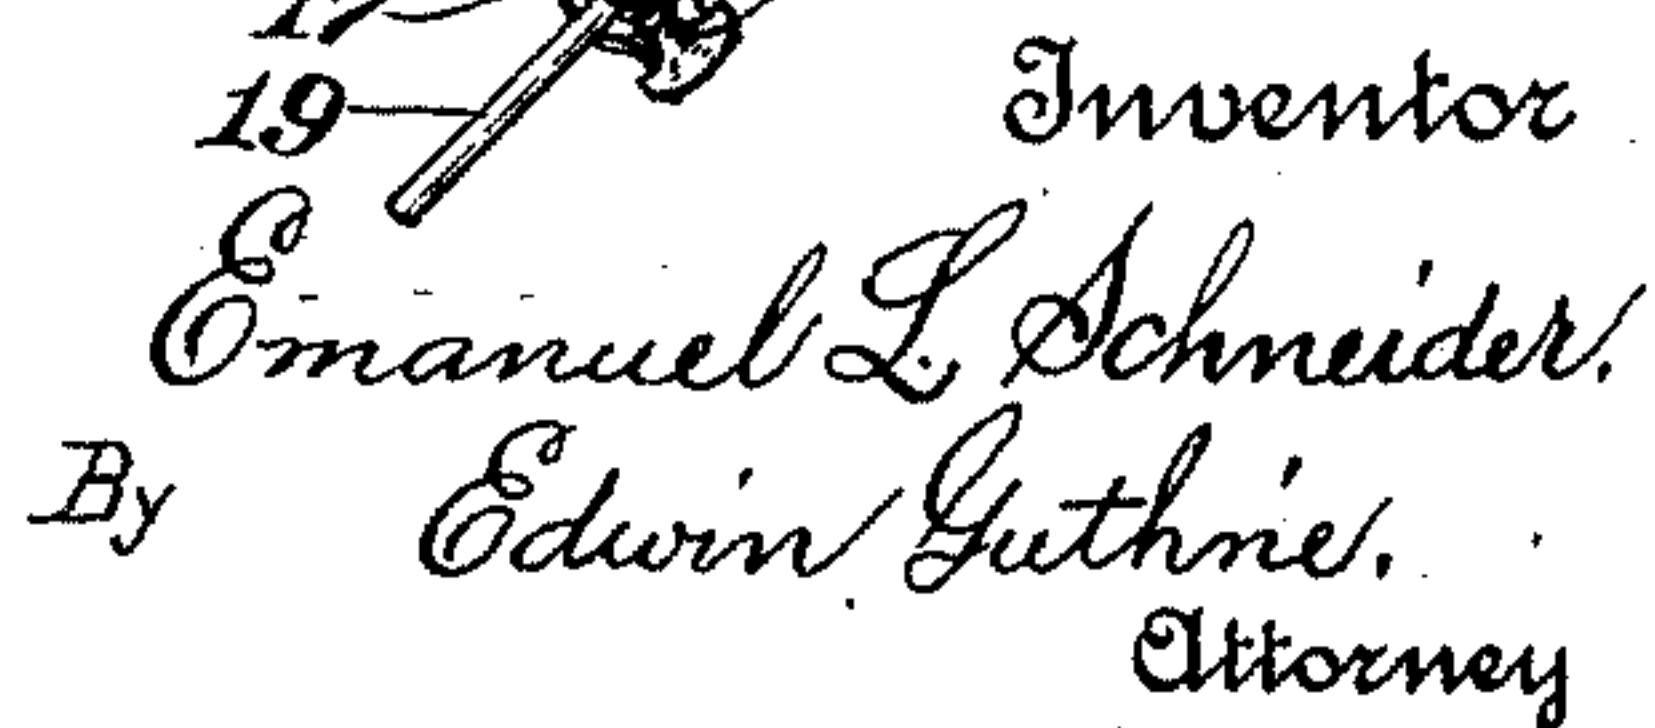 17
19
Inventor
Emanuel L. Schneider.
By Edwin Guthrie.
Attorney